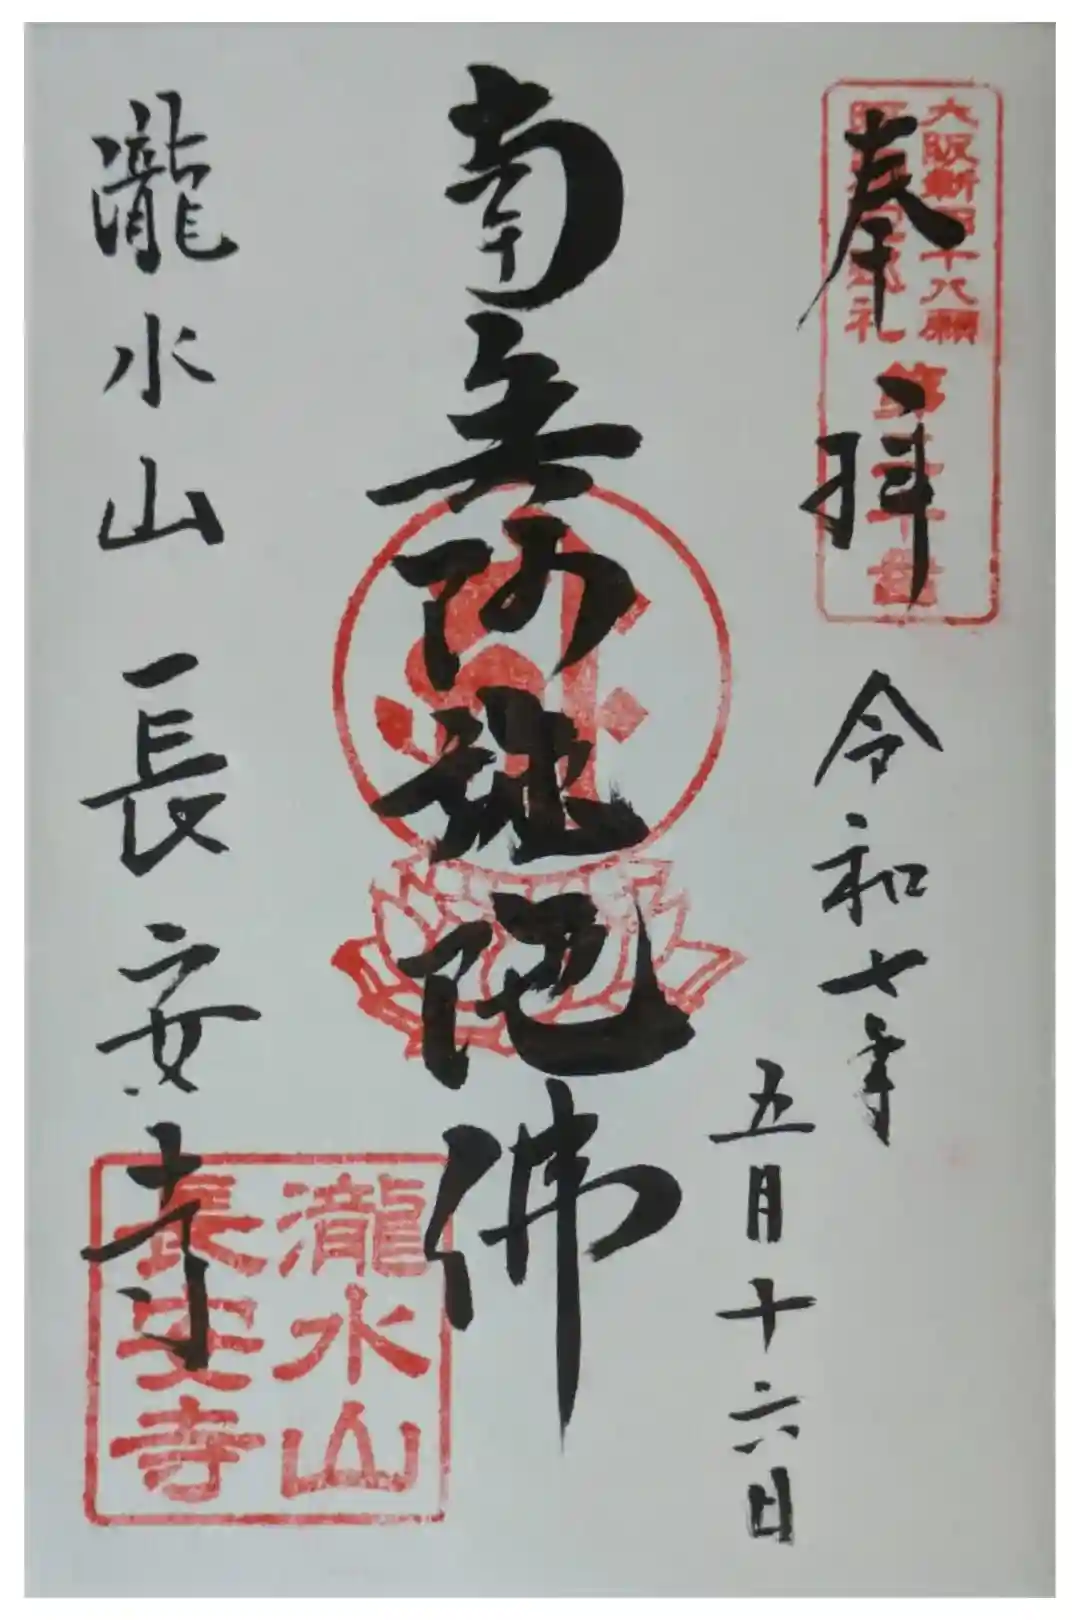 奉拝
大阪新四十八願
令和七年
五月十六日
南無阿弥陀佛
瀧水山 長安寺
瀧水山
長安寺